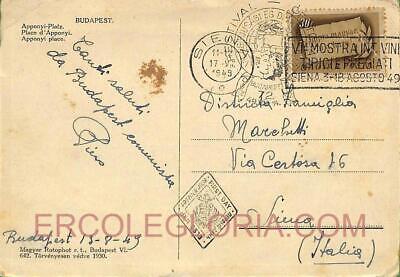 Apponyi-Platz.
BUDAPEST.
Place d'Apponyi.
Apponyi place.
Tanti saluti
da Budapest comunista
Piero
SIENA
17-VIII
1949
VIª MOSTRA INT. VINI
TIPICI E PREGIATI
SIENA 3-18 AGOSTO 49
Distinta Famiglia
Marchetti
Via Certosa 16
Siena
(Italia)
FIRST DAY
ERCOLEGLORIA.COM
Budapest 13-8-49
Magyar Rotophot r. t., Budapest VI.
642. Törvényesen védve 1930.